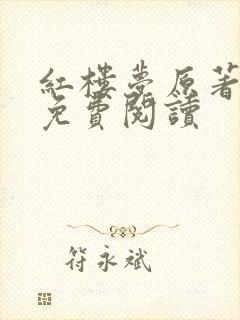 紅樓夢原著
免費閱讀
符永斌